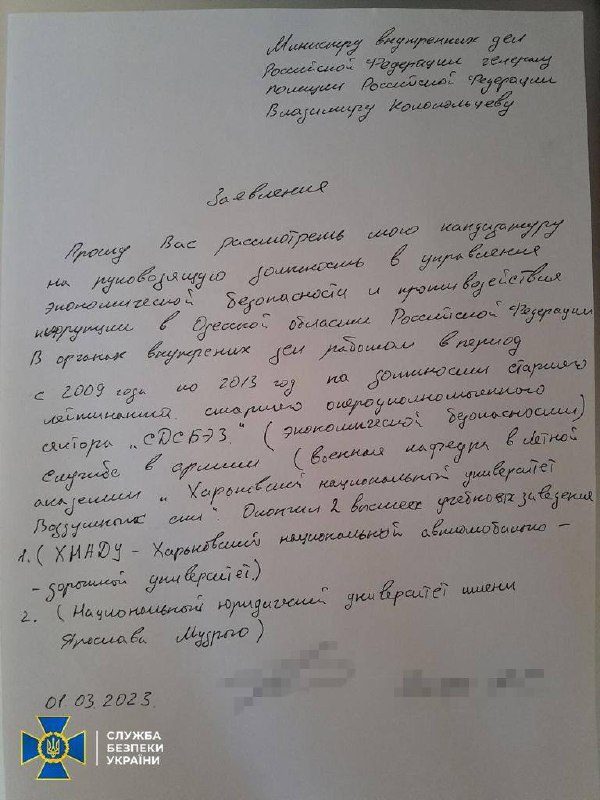 Министру внутренних дел
Российской Федерации генералу
полиции Российской Федерации
Владимиру Колокольцеву
Заявления
Прошу Вас рассмотреть мою кандидатуру
на руководящую должность в управления
экономической безопасности и противодействия
коррупции в Одесской области Российской Федерации
В органах внутрених дел работал в период
с 2009 года по 2013 год на должности старшего
лейтинанта старшего оперуполномоченного
сектора „СДСБЭЗ." (Экономической безопасности)
Служба в армии (военная кафедра в Летной
академии „Харьковский национальный университет
Воздушных сил". Окончил 2 высших учебных заведения
1. (ХНАДУ - Харьковский национальной автомобильно -
- дорожной университет.)
2. (Национальный юридический университет имени
Ярослава Мудрого)
01.03.2023.
СЛУЖБА
БЕЗПЕКИ
УКРАЇНИ